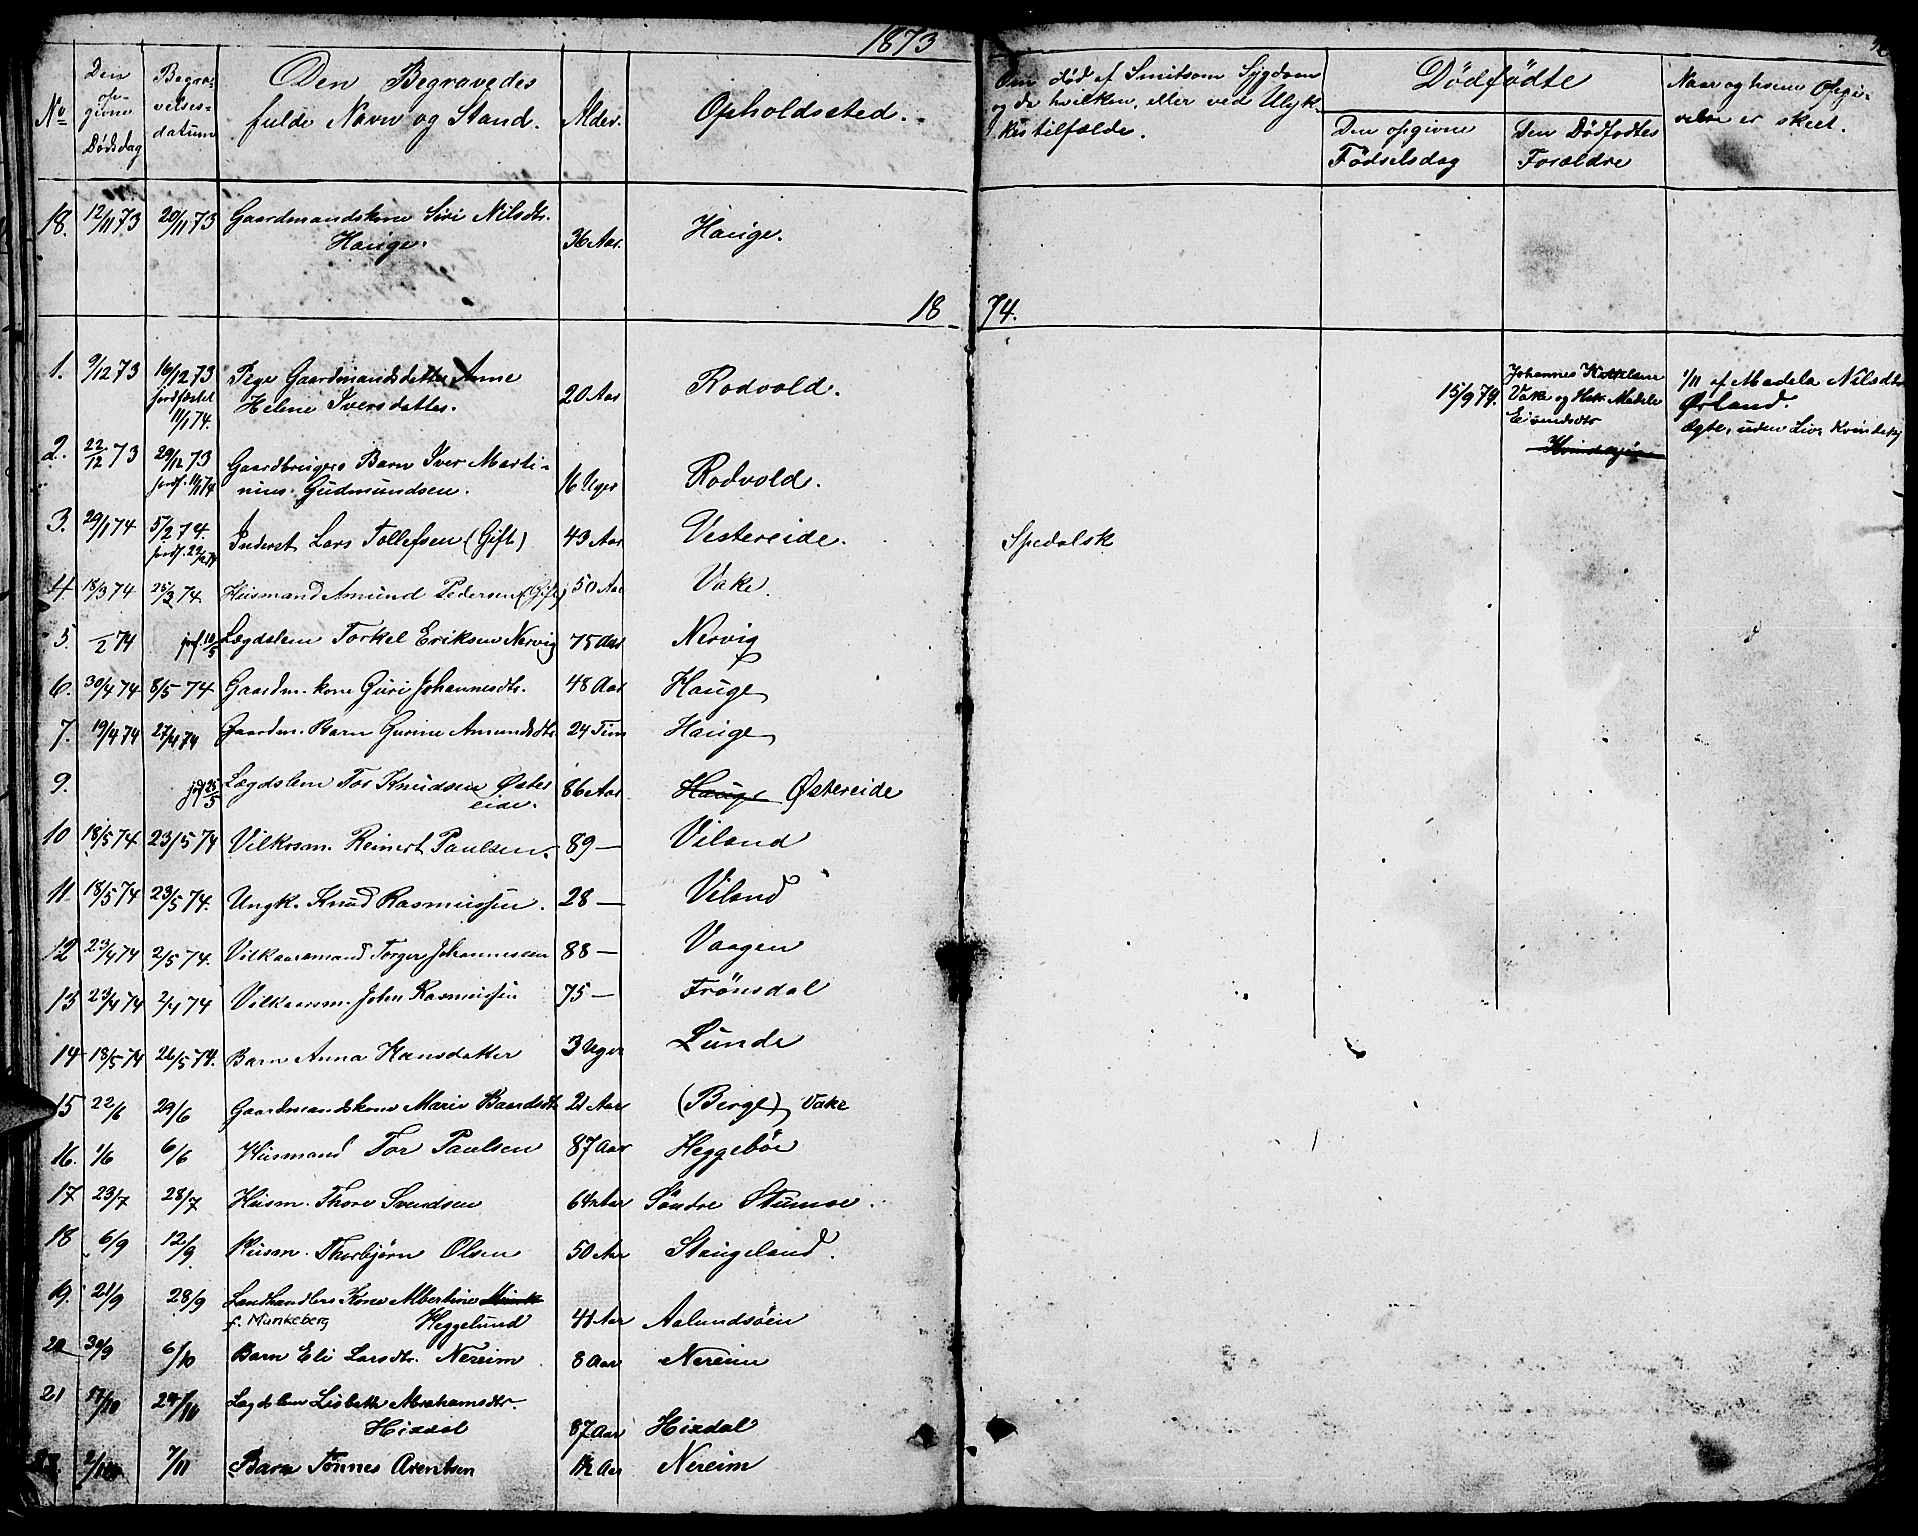 1873
No
Den opgivne Dødsdag
Begravelsesdatum
Den Begravedes fulde Navn og Stand.
Alder.
Opholdssted.
Om død af Smitsom Sygdom
og da hvilken, eller ved Ulyk-
kestilfælde.
Dødfødte
Den opgivne Fødselsdag
Den Dødfødtes Forældre
Naar og hvem Opgi-
velse er skeet.
18. 12/11 73 20/11 73 Gaardmandskone Siri Nilsdtr. Hauge. 36 Aar. Hauge.
1874.
1. 9/12 73 16/12 73 jordfæstet 11/1 74. Pige Gaardmandsdatter Anne
Helene Iversdatter. 20 Aar Rodvold.
15/9 74. Johannes
Vake og Hst. Madele
Eivindsdtr
1/11 af Madela Nilsdtr
Ørland.
Ægte, uden Liv, Kvindekj
2. 22/12 73 29/12 73 jordf. 11/1 74 Gaardbrugers Barn Iver Marti-
nius Gudmundsen. 16 Uger Rodvold.
3. 29/1 74 5/2 74. jordf. 22/2 74 Inderst Lars Tollefsen (Gift) 43 Aar Vestereide. Spedalsk
4. 18/3 74 25/3 74 Huusmand Amund Pedersen (Gift) 50 Aar Vake.
5. /2 74 jrf. 10/5 Lægdslem Torkel Eriksen Nervig 75 Aar Nervig
6. 30/4 74 8/5 74 Gaardm. kone Guri Johannesdtr. 48 Aar Hauge
7. 19/4 74 27/4 74 Gaardm. Barn Gurine Amundsdtr. 24 Tim Hauge
9. jrf 25/5 Lægdslem Tor Knudsen Øster
eide. 86 Aar Hauge Østereide
10 18/5 74 23/5 74 Vilkaarsm. Reinert Paulsen. 89 — Viland
11. 18/5 74 23/5 74. Ungk. Knud Rasmussen. 28 — Viland
12 23/4 74 2/5 74. Vilkaarsmand Torger Johannessen 88 — Vaagen
13 23/4 74 2/4 74 Vilkaarsm. John Rasmussen 75 — Frönsdal
14 18/5 74 26/5 74. Barn Anna Hansdatter 3 Uger Lunde
15 22/6 29/6 Gaardmandskone Marie Baardsdt 21 Aar (Berge) Vake
16. 1/6 6/6 Huusmand Tor Paulsen 87 Aar Heggebøe
17 23/7 28/7 Huusm. Thore Svendsen 64 Aar Söndre Stumoe.
18 6/9 12/9 Huusm. Thorbjørn Olsen 50 Aar Stangeland.
19. 21/9 28/9 Landhandlers Kone Albertine Munk
f. Munkeberg Heggelund 41 Aar Aalundsöen
20 30/9 6/10 Barn Eli Larsdtr. Nereim 8 Aar Nereim
21 17/10 24/10 Lægdslem Lisbeth Abrahamsdtr.
Hixdal 87 Aar Hixdal
22. 2/11 7/11 Barn Tönnes Arentsen 1½ Aar Nereim